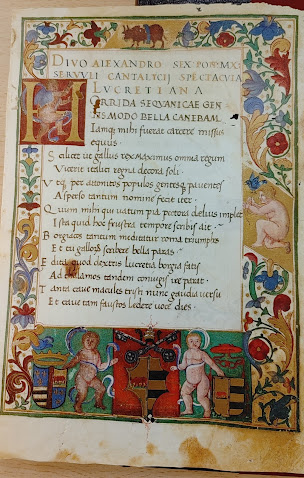 DIVO ALEXANDRO SEX PON MX
SERVVLI CANTALYCII SPECTACVLA
LVCRETIANA
HORRIDA SEQVANICAE GEN
TIS MODO BELLA CANEBAM
Iamq; mihi furae carcere missus
equus
Soluere ut gallus rex maximus omnia regum
Vicerit italici regna decora soli
Vtq; per daomitos populos gentesq; pauentes
Aspersо tantum nomine fecit iter
Quum mihi qui uatum pia pectora delius implet
Ista quid hoc frustra tempore scribis ait
Borgiadas tantum meditatur roma triumphos
Et tu gallorum scribere bella paras
Edita quod dextris Lucretia borgia fatis
Ad thalamos tandem coniugis ire parat
Tanta caue macules tristi nunc gaudia uersu
Et caue tam faustos ledere uoce dies